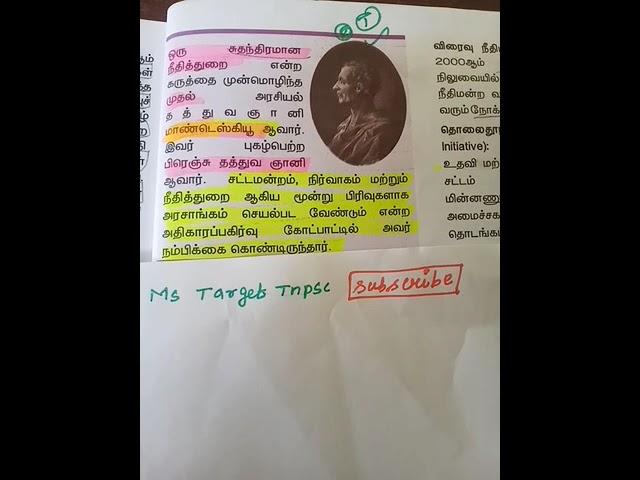 T
ஒரு சுதந்திரமான
நீதித்துறை என்ற
கருத்தை முன்மொழிந்த
முதல் அரசியல்
தத்துவஞானி
மாண்டெஸ்கியூ ஆவார்.
இவர் புகழ்பெற்ற
பிரெஞ்சு தத்துவ ஞானி
ஆவார். சட்டமன்றம், நிர்வாகம் மற்றும்
நீதித்துறை ஆகிய மூன்று பிரிவுகளாக
அரசாங்கம் செயல்பட வேண்டும் என்ற
அதிகாரப்பகிர்வு கோட்பாட்டில் அவர்
நம்பிக்கை கொண்டிருந்தார்.
விரைவு நீதி
2000ஆம்
நிலுவையில்
நீதிமன்ற வ
வரும்நோக்
தொலைதூ
Initiative):
உதவி மற்
சட்டம்
மின்னணு
அமைச்சக
தொடங்க
Ms Targets Tnpsc subscribe